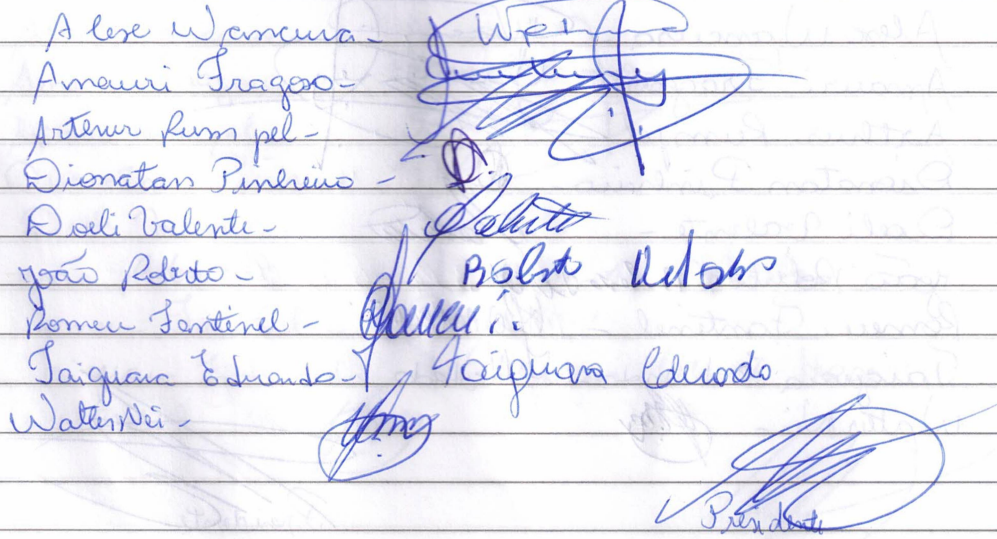 Alex Wancura -
Amauri Fragoso -
Arthur Rumpel -
Dionatan Pinheiro - D.
Doeli Valente -
João Roberto - Roberto
Romeu Fentinel - Romeu
Taiguara Eduardo - Taiguara Eduardo
Walter Nei -
Presidente